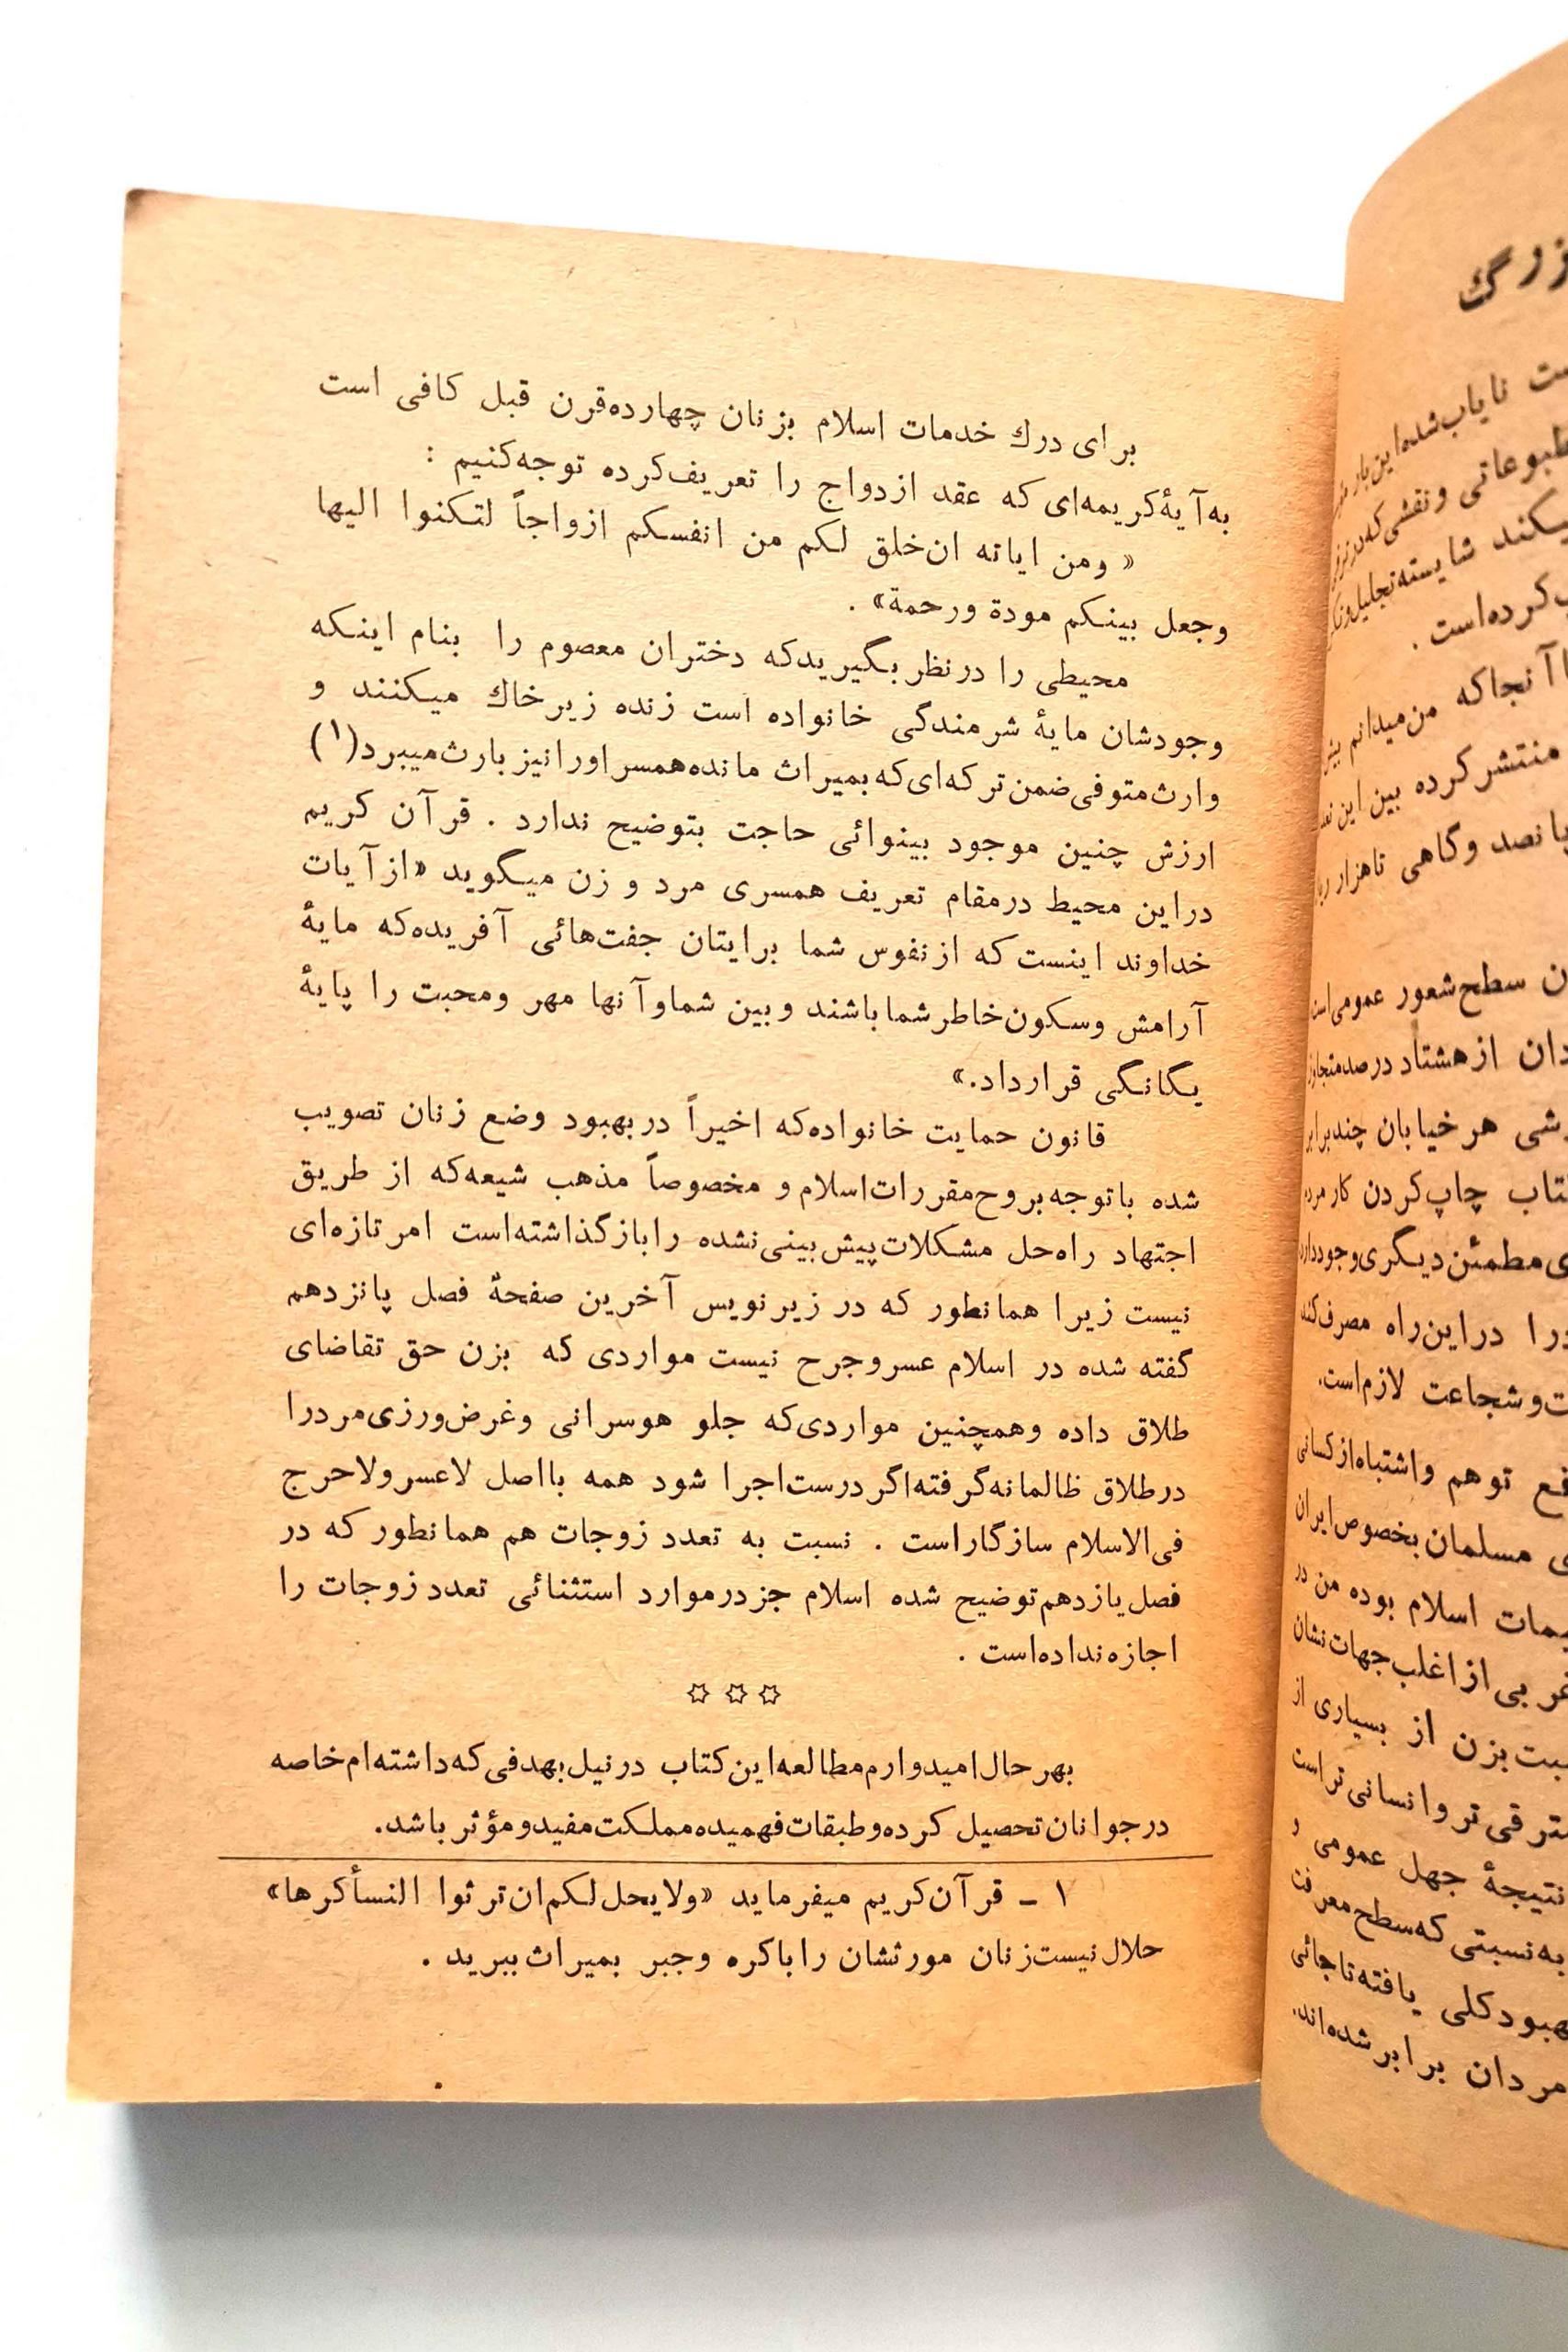 برای درك خدمات اسلام بزنان چهارده‌قرن قبل کافی است
به‌آیۀ‌کریمه‌ای که عقد ازدواج را تعریف‌کرده توجه‌کنیم :
« ومن ایاته ان‌خلق لکم من انفسکم ازواجاً لتکنوا الیها
وجعل بینکم مودة ورحمة» .
محیطی را درنظر بگیریدکه دختران معصوم را بنام اینکه
وجودشان مایۀ شرمندگی خانواده است زنده زیرخاك میکنند و
وارث‌متوفی‌ضمن‌ترکه‌ای‌که‌بمیراث مانده‌همسراورانیز بارث‌میبرد(۱)
ارزش چنین موجود بینوائی حاجت بتوضیح ندارد . قرآن کریم
دراین محیط درمقام تعریف همسری مرد و زن میگوید «ازآیات
خداوند اینست‌که ازنفوس شما برایتان جفت‌هائی آفریده‌که مایۀ
آرامش وسکون‌خاطرشماباشند وبین شماوآنها مهر ومحبت را پایۀ
یگانگی قرارداد.»
قانون حمایت خانواده‌که اخیراً دربهبود وضع زنان تصویب
شده باتوجه‌بروح‌مقررات‌اسلام‌و مخصوصاً مذهب شیعه‌که از طریق
اجتهاد راه‌حل مشکلات‌پیش‌بینی‌نشده راباز‌گذاشته‌است امرتازه‌ای
نیست زیرا همانطور که در زیرنویس آخرین صفحۀ فصل پانزدهم
گفته شده در اسلام عسروجرح نیست مواردی که بزن حق تقاضای
طلاق داده وهمچنین مواردی‌که جلو هوسرانی وغرض‌ورزی‌مردرا
درطلاق ظالمانه‌گرفته‌اگردرست‌اجرا شود همه بااصل لاعسرولاحرج
فی‌الاسلام سازگاراست . نسبت به تعدد زوجات هم همانطور که در
فصل‌یازدهم‌توضیح شده اسلام جزدرموارد استثنائی تعددزوجات را
اجازه‌نداده‌است .
☆ ☆ ☆
بهرحال‌امیدوارم‌مطالعه‌این‌کتاب درنیل‌بهدفی‌که‌داشته‌ام‌خاصه
درجوانان‌تحصیل کرده‌وطبقات‌فهمیده‌مملکت‌مفیدومؤثرباشد.
۱ - قرآن‌کریم میفرماید «ولایحل‌لکم‌ان‌ترثوا النسأکرها»
حلال‌نیست‌زنان مورثشان راباکره وجبر بمیراث‌ببرید .
ست نایاب‌شده‌این‌بار
طبوعاتی ونقشی‌که‌در
یکند شایسته‌تجلیل
کرده‌است .
آنجاکه من‌میدانم
منتشرکرده بین این
پانصد وگاهی تاهزار
ن سطح‌شعور عمومی‌است
دان ازهشتاد درصدمتجاوز
شی هرخیابان چندبرابر
تاب چاپ‌کردن کارمردم
ی‌مطمئن‌دیگری‌وجوددارد
درا دراین‌راه مصرف‌کند
ت‌وشجاعت لازم‌است.
فع توهم واشتباه‌ازکسانی
ی مسلمان‌بخصوص‌ایران
یمات اسلام بوده من در
غربی‌ازاغلب‌جهات‌نشان
سبت‌بزن از بسیاری از
مترقی‌تروانسانی‌تراست
نتیجۀ جهل عمومی و
به‌نسبتی‌که‌سطح‌معرفت
هبودکلی یافته‌تاجائی
مردان برابرشده‌اند.